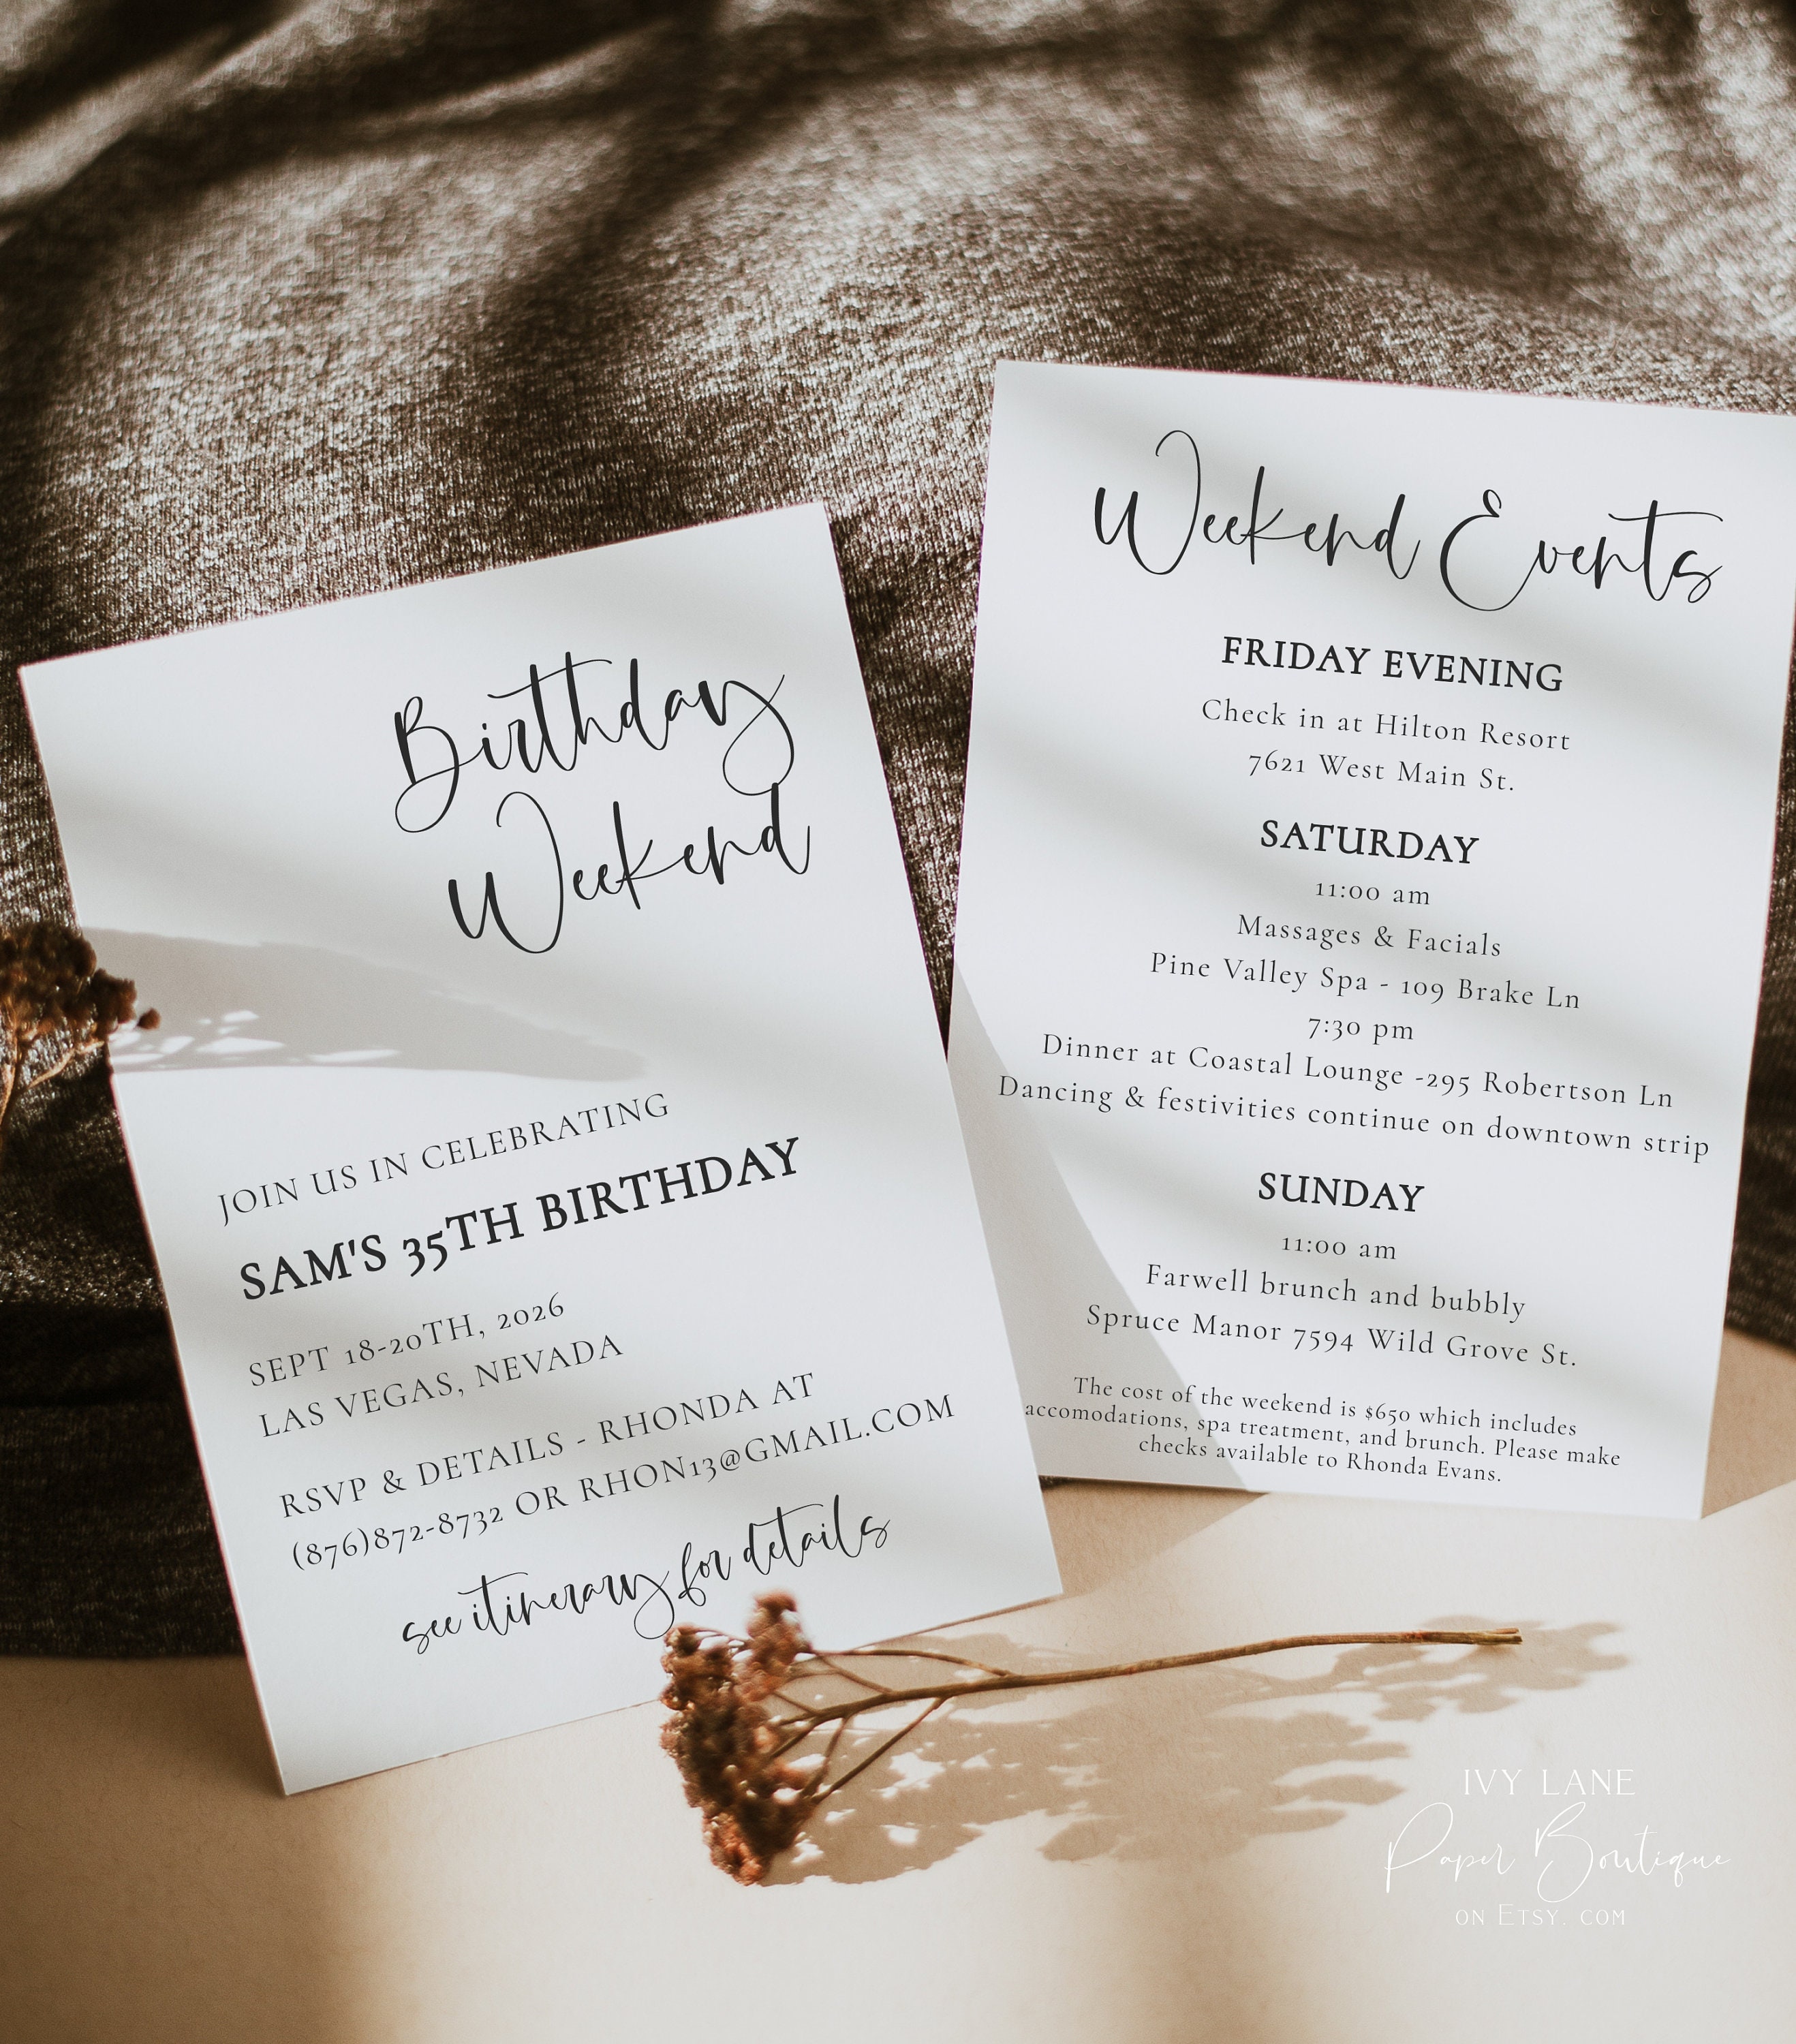 Birthday
Weekend
JOIN US IN CELEBRATING
SAM'S 35TH BIRTHDAY
SEPT 18-20TH, 2026
LAS VEGAS, NEVADA
RSVP & DETAILS - RHONDA AT
(876)872-8732 OR RHON13@GMAIL.COM
see itinerary for details
Weekend Events
FRIDAY EVENING
Check in at Hilton Resort
7621 West Main St.
SATURDAY
11:00 am
Massages & Facials
Pine Valley Spa - 109 Brake Ln
7:30 pm
Dinner at Coastal Lounge -295 Robertson Ln
Dancing & festivities continue on downtown strip
SUNDAY
11:00 am
Farwell brunch and bubbly
Spruce Manor 7594 Wild Grove St.
The cost of the weekend is $650 which includes
accomodations, spa treatment, and brunch. Please make
checks available to Rhonda Evans.
IVY LANE
Paper Boutique
ON ETSY. COM